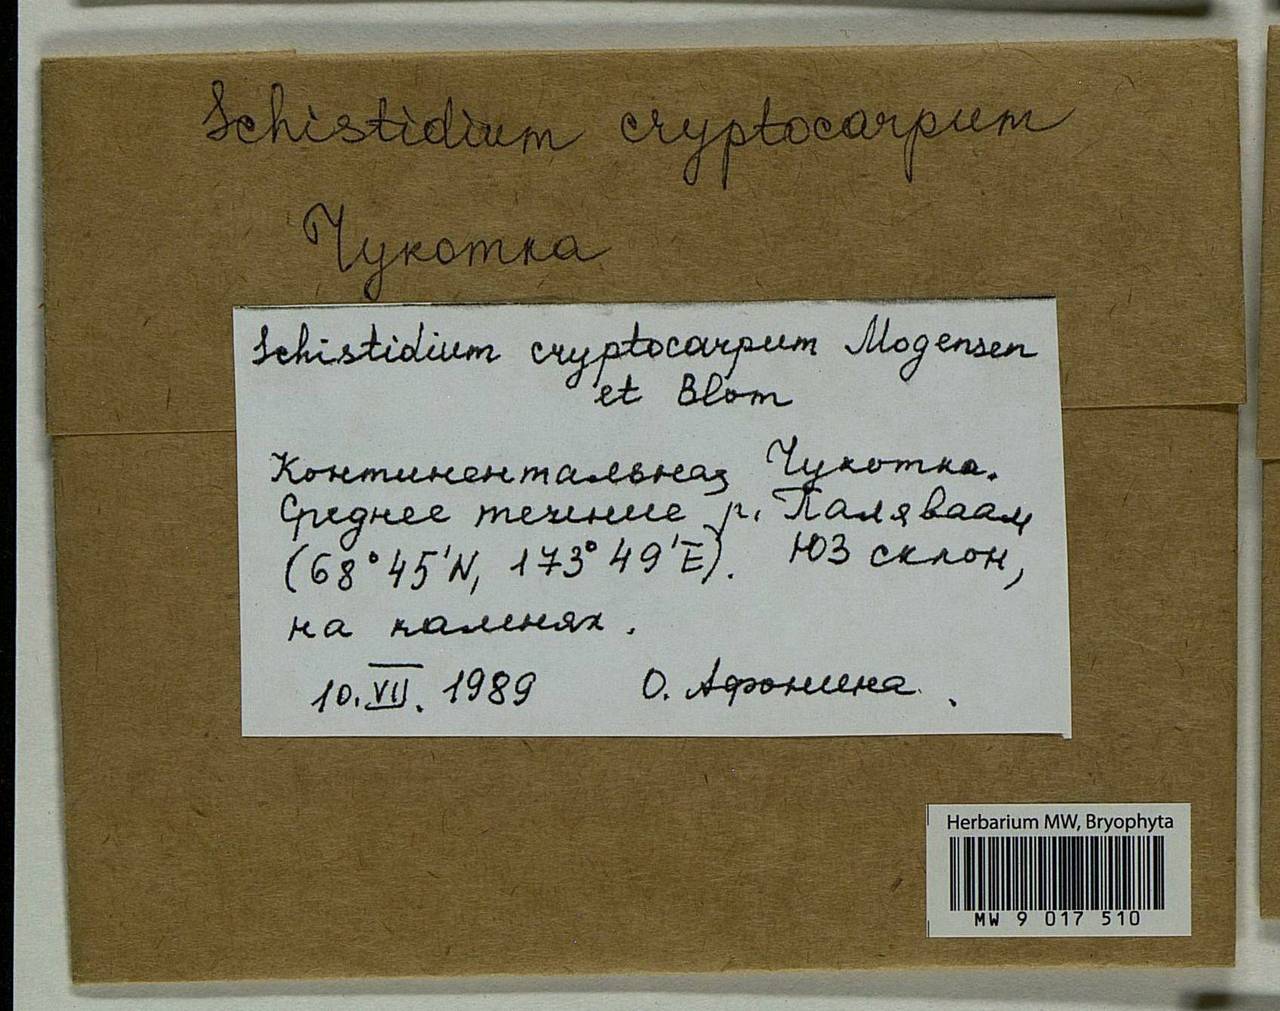 Schistidium cryptocarpum
Чукотка
Schistidium cryptocarpum Mogensen
et Blom
Континентальная Чукотка.
Среднее течение р. Паляваам
(68°45'N, 173°49'E). ЮЗ склон,
на камнях.
10.VII.1989 О. Афонина.
Herbarium MW, Bryophyta
MW 9 017 510